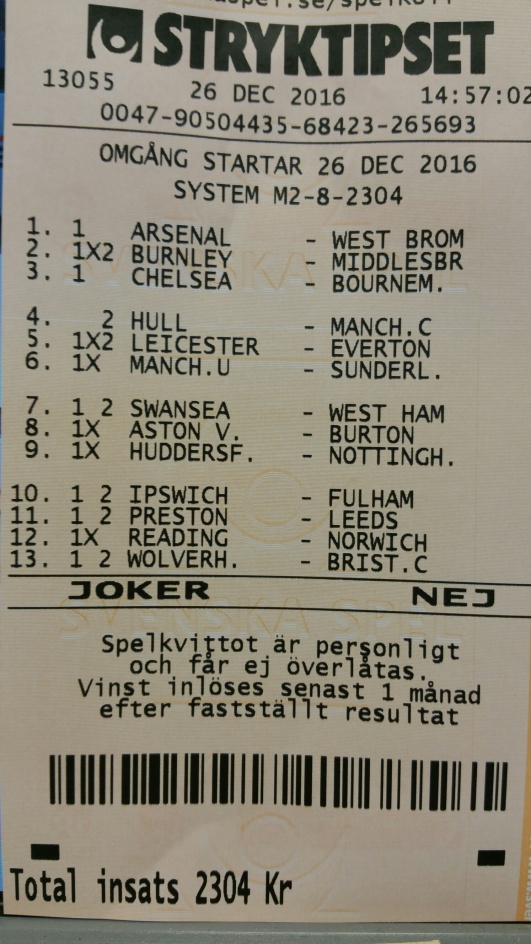 STRYKTIPSET
13055 26 DEC 2016 14:57:02
0047-90504435-68423-265693
OMGÅNG STARTAR 26 DEC 2016
SYSTEM M2-8-2304
1. 1 ARSENAL - WEST BROM
2. 1X2 BURNLEY - MIDDLESBR
3. 1 CHELSEA - BOURNEM.
4. 2 HULL - MANCH.C
5. 1X2 LEICESTER - EVERTON
6. 1X MANCH.U - SUNDERL.
7. 1 2 SWANSEA - WEST HAM
8. 1X ASTON V. - BURTON
9. 1X HUDDERSF. - NOTTINGH.
10. 1 2 IPSWICH - FULHAM
11. 1 2 PRESTON - LEEDS
12. 1X READING - NORWICH
13. 1 2 WOLVERH. - BRIST.C
JOKER NEJ
SVENSKA SPEL
Spelkvittot är personligt
och får ej överlåtas.
Vinst inlöses senast 1 månad
efter fastställt resultat
Total insats 2304 Kr